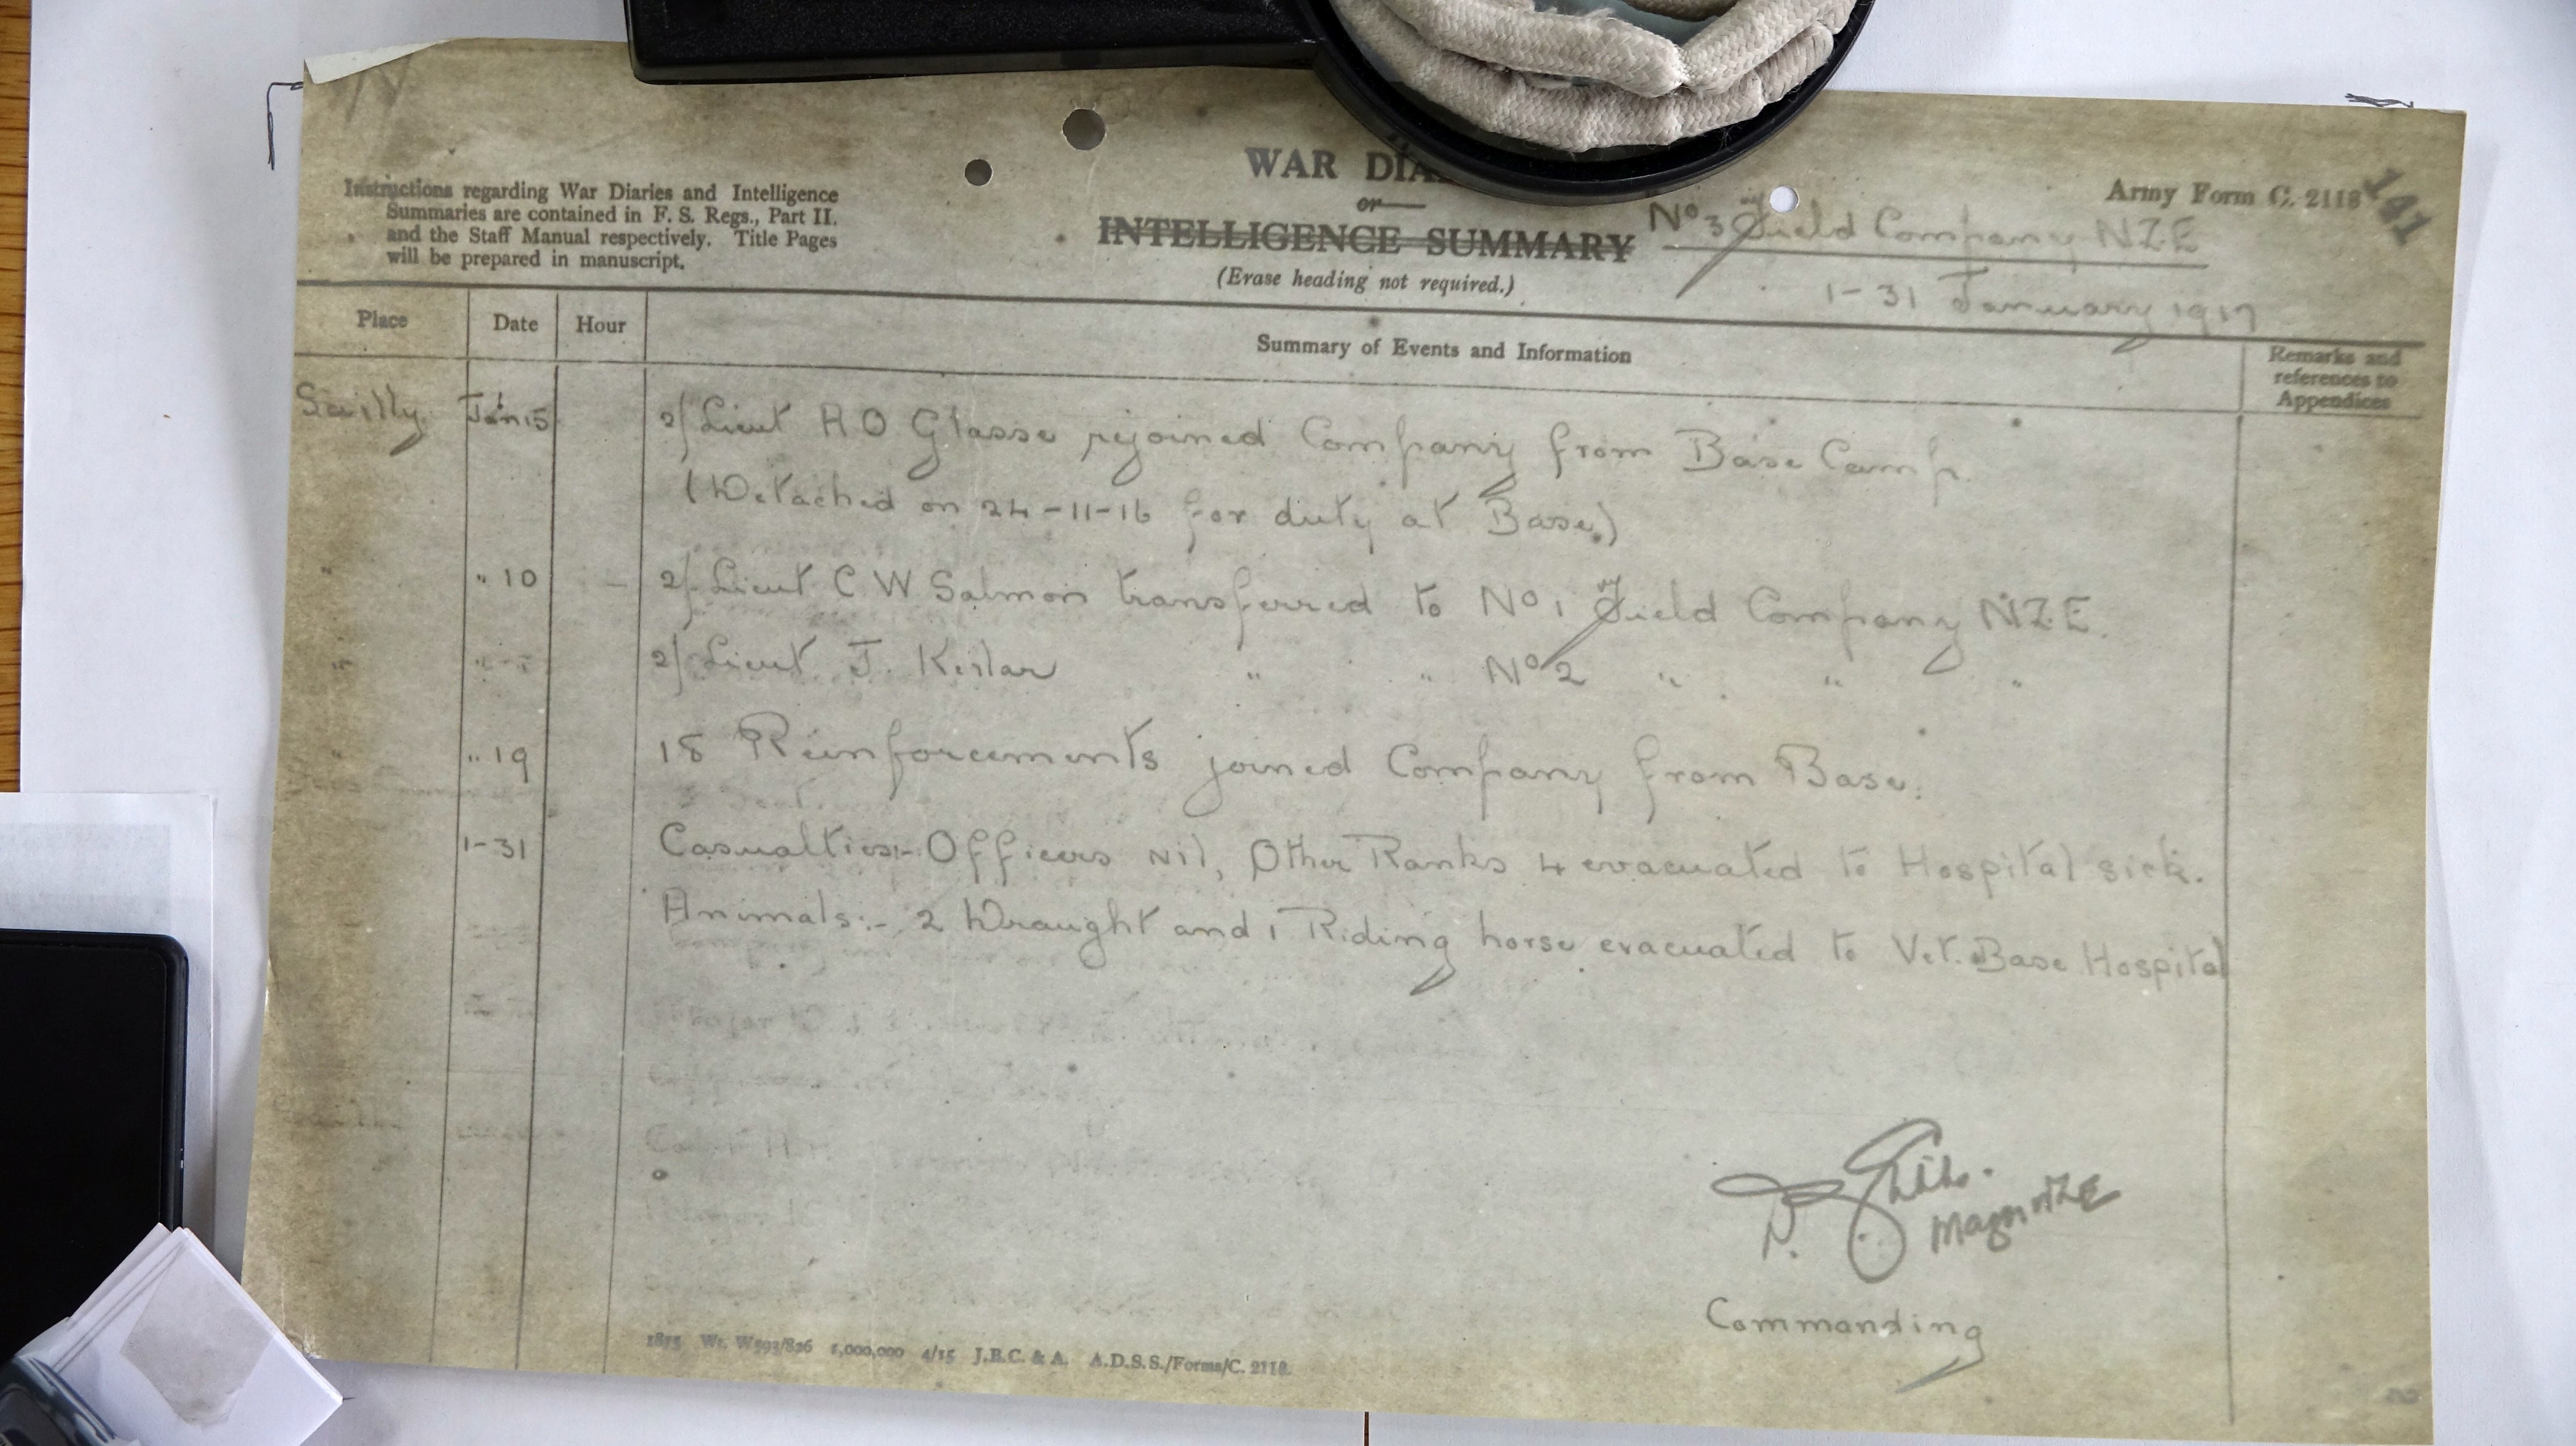 Instructions regarding War Diaries and Intelligence
Summaries are contained in F. S. Regs., Part II.
and the Staff Manual respectively. Title Pages
will be prepared in manuscript.
WAR DIA
or
INTELLIGENCE SUMMARY
(Erase heading not required.)
Army Form C. 2118
141
No 3 Field Company NZE
1-31 January 1917
Place
Date
Hour
Summary of Events and Information
Remarks and
references to
Appendices
Sailly. Jan 15 2/Lieut H O Glasse rejoined Company from Base Camp
(Detached on 24-11-16 for duty at Base.)
" " 10 2/Lieut C W Salmon transferred to No 1 Field Company NZE.
" 2/Lieut J. Keilar " " No 2 " " "
" " 19 18 Reinforcements joined Company from Base.
1-31 Casualties:- Officers nil, Other Ranks 4 evacuated to Hospital sick.
Animals:- 2 Draught and 1 Riding horse evacuated to Vet. Base Hospital
Major NZE
Commanding
1875 Wt. W593/826 1,000,000 4/15 J.B.C. & A. A.D.S.S./Forms/C. 2118.